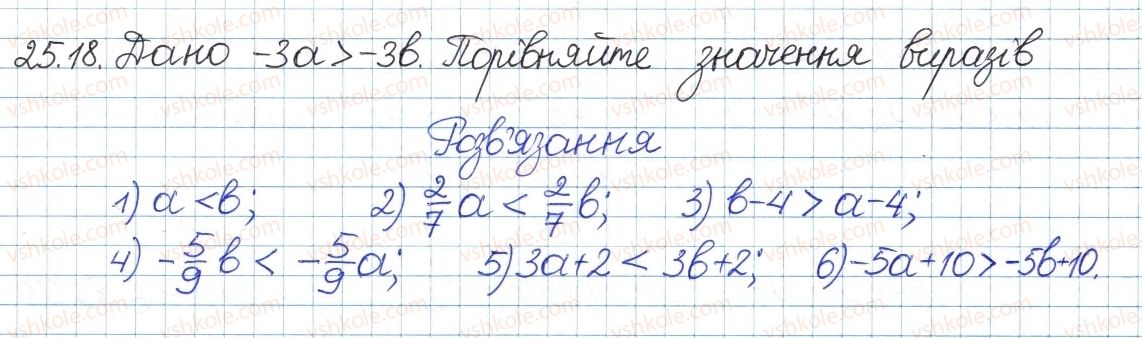 25.18. Дано -3a > -3b. Порівняйте значення виразів
Розв'язання
1) a < b; 2) 2/7 a < 2/7 b; 3) b-4 > a-4;
4) -5/9 b < -5/9 a; 5) 3a+2 < 3b+2; 6) -5a+10 > -5b+10.